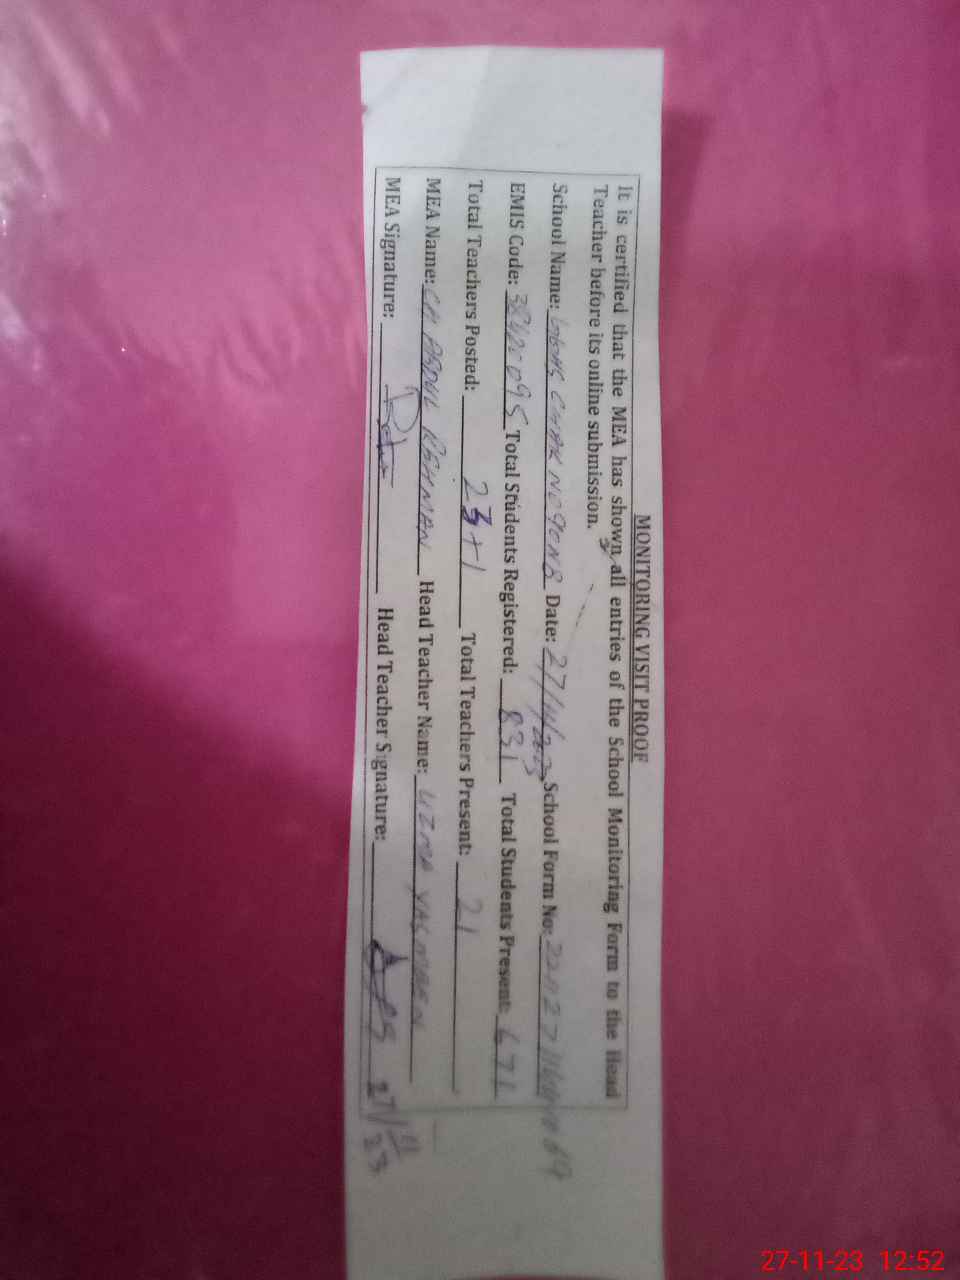 MONITORING VISIT PROOF
It is certified that the MEA has shown all entries of the School Monitoring Form to the Head
Teacher before its online submission.
School Name: GGHS CHAK NO 90 NB Date: 27/11/2023 School Form No:
EMIS Code: 38420095 Total Students Registered: 831 Total Students Present: 671
Total Teachers Posted: 23+1 Total Teachers Present: 21
MEA Name: CH ABDUL REHMAN Head Teacher Name: UZMA YASMEEN
MEA Signature: Head Teacher Signature: 27/11/23
27-11-23 12:52